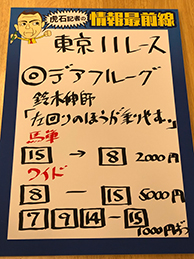 虎石記者の
情報最前線
東京11レース
◎デアフルーグ
鈴木伸師
「左回りのほうが乗りやす。」
馬単
15 → 8 2000円
ワイド
8 ― 15 5000円
7 9 14 ― 15
1000円ずつ